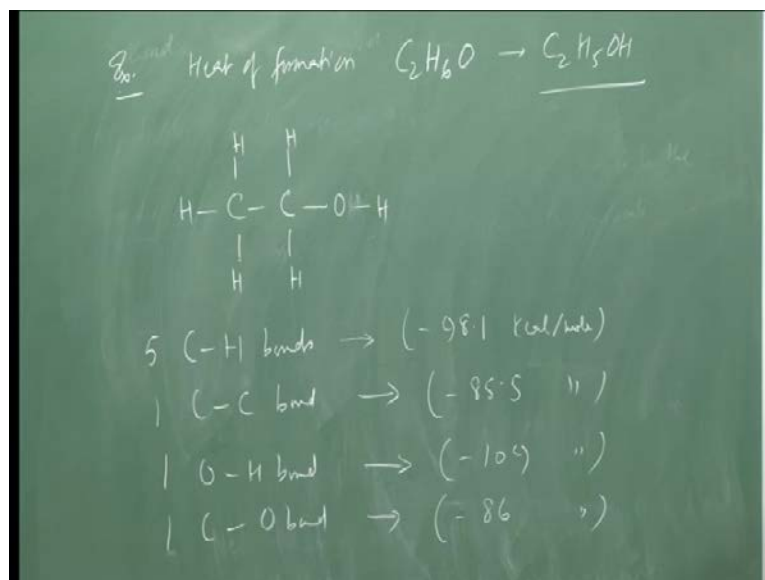 Ex. Heat of formation C2H6O → C2H5OH
H H
H – C – C – O – H
H H
5 C–H bonds → (-98.1 kcal/mole)
1 C–C bond → (-85.5 ")
1 O–H bond → (-109 ")
1 C–O bond → (-86 ")